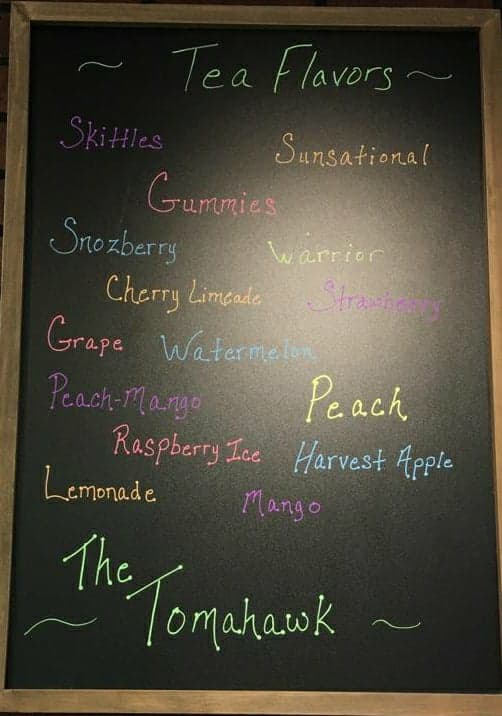 ~ Tea Flavors ~
Skittles
Sunsational
Gummies
Snozberry
Warrior
Cherry Limeade
Strawberry
Grape
Watermelon
Peach-Mango
Peach
Raspberry Ice
Harvest Apple
Lemonade
Mango
The
~ Tomahawk ~